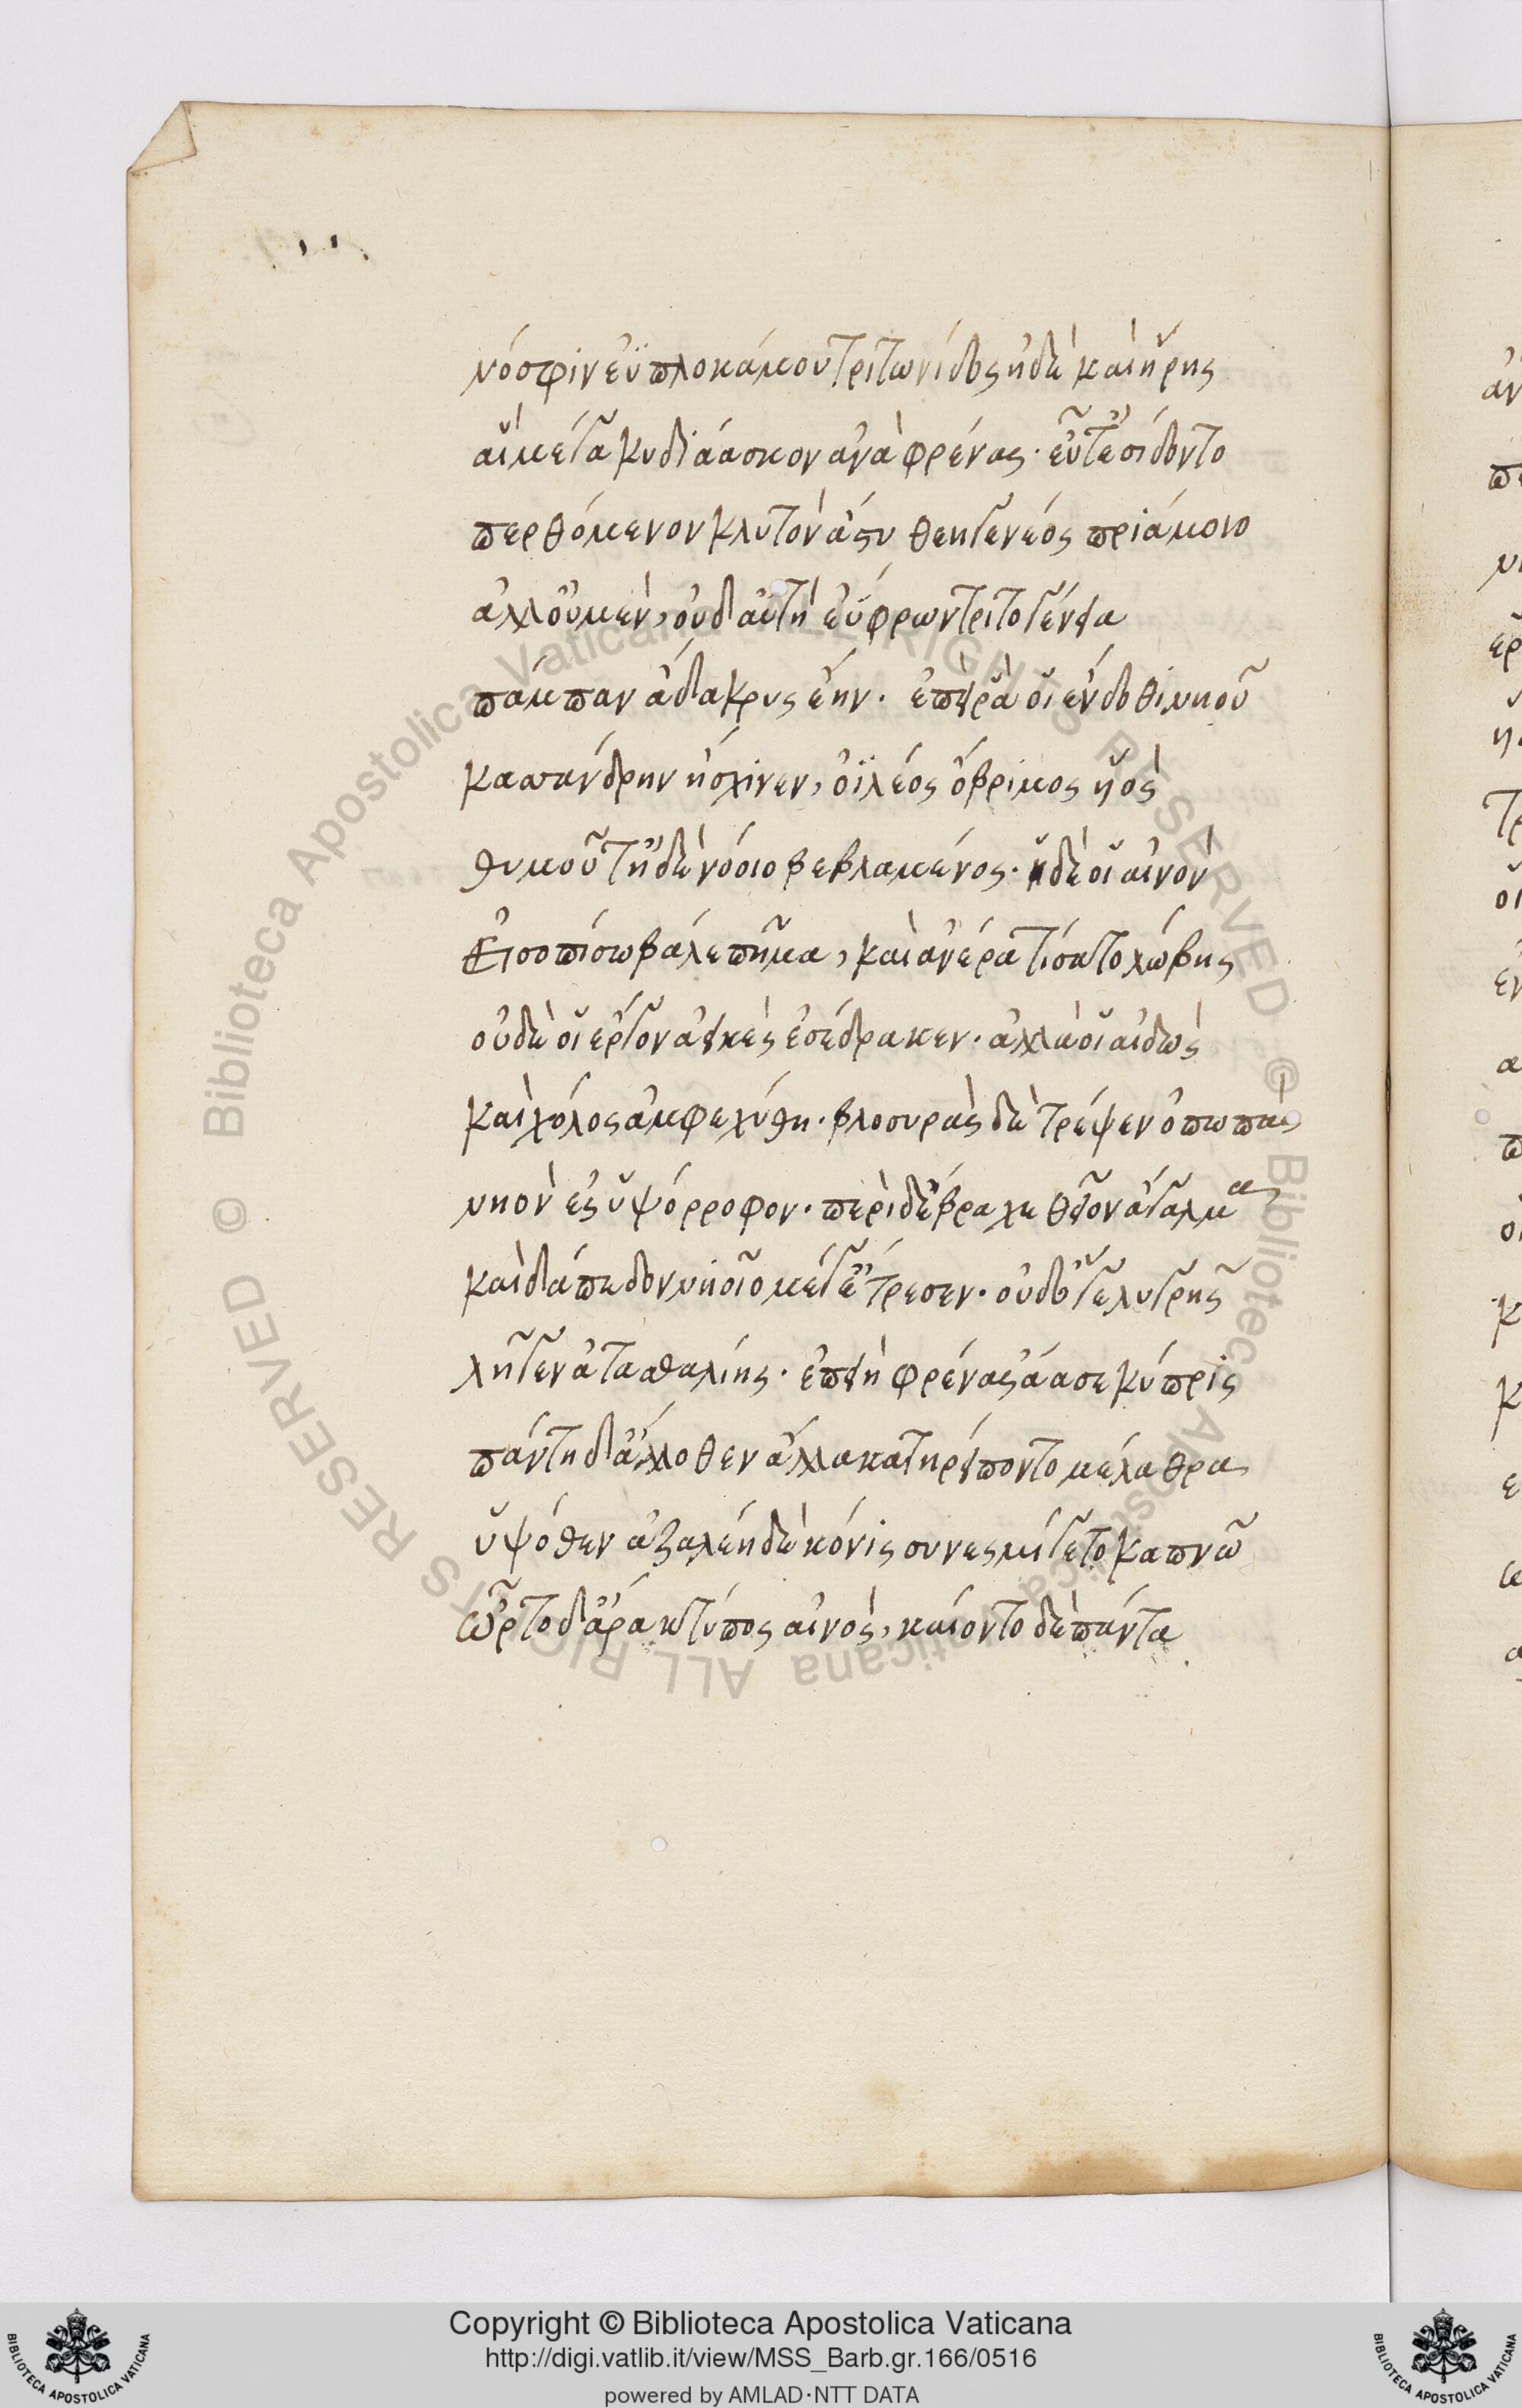 νόσφιν ἐϋπλοκάμου τριτωνίδος ἠδὲ καὶ ἥρης
αἳ μέγα κυδιάασκον ἀνὰ φρένας· εὖτ' ἐσίδοντο
περθόμενον κλυτὸν ἄστυ θεηγενέος πριάμοιο
ἀλλ' οὐ μὲν, οὐδ' αὐτὴ ἐΰφρων τριτογένεια
πάμπαν ἄδακρυς ἔην· ἐπεί ῥά οἱ ἔνδοθι νηοῦ
κασσάνδρην ἤσχυνεν, ὀϊλέος ὄβριμος υἱὸς
θυμοῦ τ' ἠδὲ νόοιο βεβλαμένος· ἡ δέ οἱ αἰνὸν
εἰσοπίσω βάλε πῆμα, καὶ ἀνέρα τίσατο λώβης
οὐδέ οἱ ἔργον ἀεικὲς ἐσέδρακεν· ἀλλά οἱ αἰδὼς
καὶ χόλος ἀμφεχύθη· βλοσυρὰς δὲ τρέψεν ὀπωπὰς
νηὸν ἐς ὑψόρροφον· περὶ δ' ἔβραχε θεῖον ἄγαλμα
καὶ δάπεδον νηοῖο μέγ' ἔτρεσεν· οὐδ' ὅγε λυγρῆς
λῆγεν ἀτασθαλίης· ἐπεὶ ἦ φρένας ἄασε κύπρις
πάντη δ' ἄλλοθεν ἄλλα κατηρείποντο μέλαθρα
ὑψόθεν ἀζαλέη δὲ κόνις συνεμίσγετο καπνῶ
ὦρτο δ' ἄρα κτύπος αἰνὸς, καίοντο δὲ πάντα
Copyright © Biblioteca Apostolica Vaticana
http://digi.vatlib.it/view/MSS_Barb.gr.166/0516
powered by AMLAD·NTT DATA